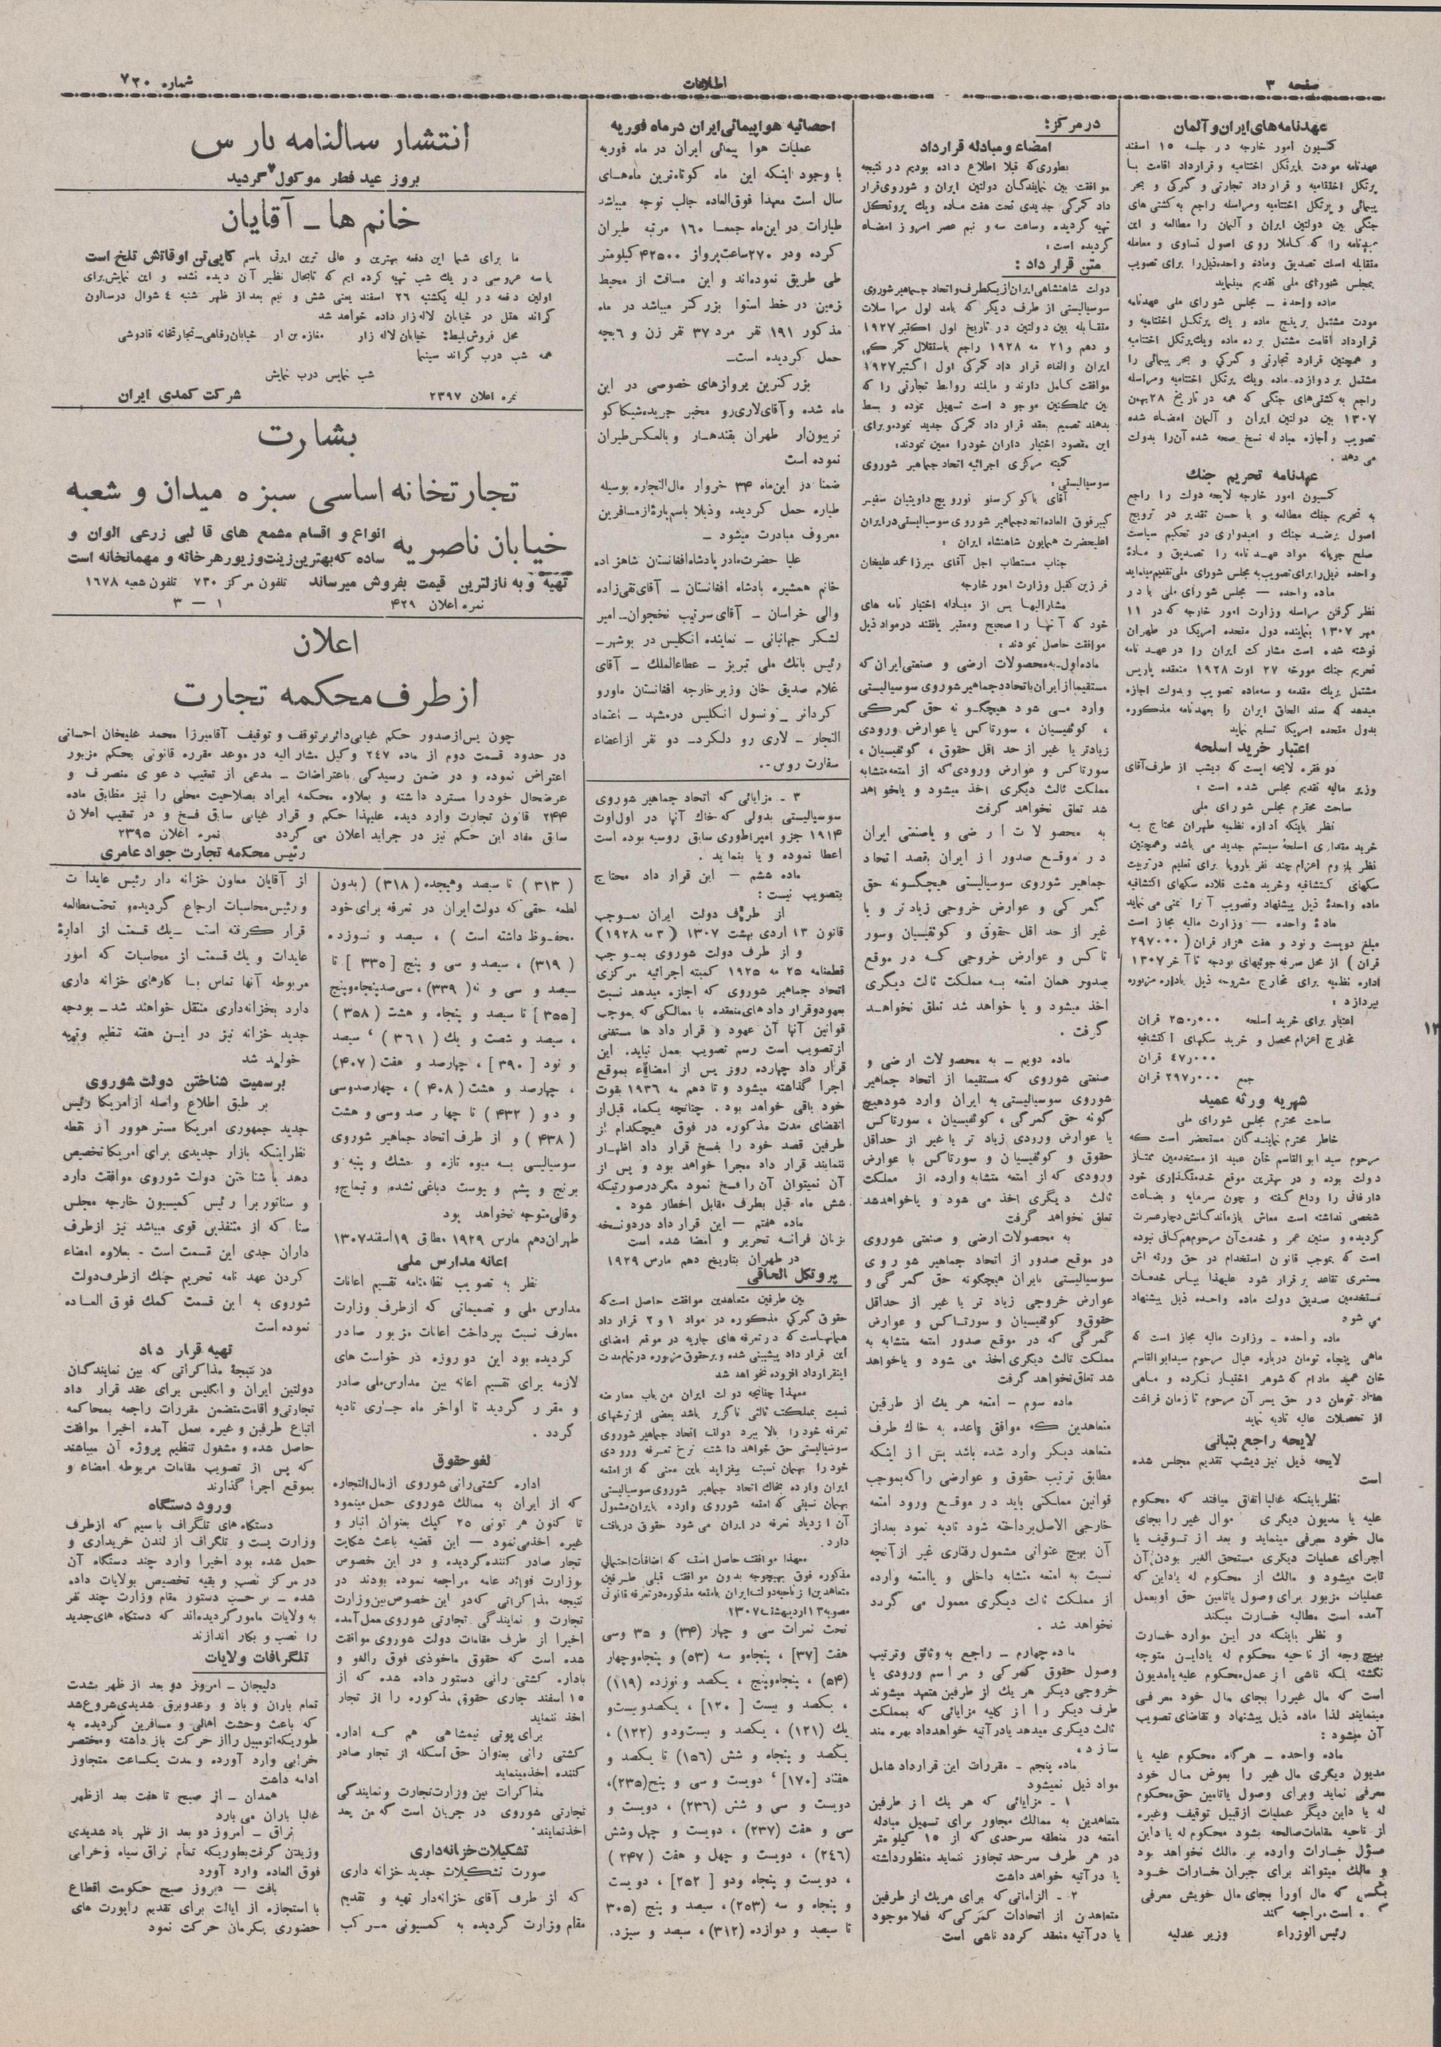 صفحه ۳
اطلاعات
شماره ۷۳۰
عهدنامه های ایران و آلمان
کمسیون امور خارجه در جلسه ۱۵ اسفند
عهدنامه مودت باپرتکل اختتامیه و قرارداد اقامت با
پرتکل اختتامیه و قرار داد تجارتی و گمرکی و بحر
پیمائی و پرتکل اختتامیه ومراسله راجع به کشتی های
جنگی بین دولتین ایران و آلمان را مطالعه و این
عهدنامه را که کاملا روی اصول تساوی و معامله
متقابله است تصدیق وماده واحده ذیل را برای تصویب
بمجلس شورای ملی تقدیم مینماید
ماده واحده – مجلس شورای ملی عهدنامه
مودت مشتمل برپنج ماده و یك پرتکل اختتامیه و
قرارداد اقامت مشتمل بر ده ماده ویك پرتکل اختتامیه
و همچنین قرارد تجارتی و گمرکی و بحر پیمائی را
مشتمل بر دوازده ماده ویك پرتکل اختتامیه ومراسله
راجع به کشتی های جنگی که همه در تاریخ ۲۸ بهمن
۱۳۰۷ بین دولتین ایران و آلمان امضاء شده
تصویب و اجازه مبادله نسخ صحه شده آن را بدولت
می دهد .
عهدنامه تحریم جنك
کمسیون امور خارجه لایحه دولت را راجع
به تحریم جنك مطالعه و با حسن تقدیر در ترویج
اصول برضد جنك و امیدواری در تحکیم سیاست
صلح جویانه مواد عهد نامه را تصدیق و مادهٔ
واحده ذیل را برای تصویب به مجلس شورای ملی تقدیم مینماید
ماده واحده – مجلس شورای ملی با در
نظر گرفتن مراسله وزارت امور خارجه که در ۱۱
مهر ۱۳۰۷ بنماینده دول متحده آمریکا در طهران
نوشته شده است مشارکت ایران را در عهد نامه
تحریم جنك مورخه ۲۷ اوت ۱۹۲۸ منعقده پاریس
مشتمل بریك مقدمه و سه ماده تصویب و بدولت اجازه
میدهد که سند الحاق ایران را بعهدنامه مذکوره
بدول متحده امریکا تسلیم نماید
اعتبار خرید اسلحه
دو فقره لایحه ایست که دیشب از طرف آقای
وزیر مالیه تقدیم مجلس شده است :
ساحت محترم مجلس شورای ملی
نظر باینکه اداره نظمیه طهران محتاج به
خرید مقداری اسلحهٔ سیستم جدید می باشد وهمچنین
نظر بلزوم اعزام چند نفر باروپا برای تعلیم در تربیت
سگهای کشافیه وخرید هشت قلاده سگهای اکتشافیه
ماده واحدهٔ ذیل پیشنهاد وتصویب آنرا تمنی می نماید
مادهٔ واحده — وزارت مالیه مجاز است
مبلغ دویست و نود و هفت هزار قران ( ۲۹۷۰۰۰
قران ) از محل صرفه جوئیهای بودجه تا آخر ۱۳۰۷
اداره نظمیه برای مخارج مشروحه ذیل باداره مزبوره
بپردازد :
اعتبار برای خرید اسلحه ۲۵۰ر۰۰۰ قران
مخارج اعزام محصل و خرید سگهای اکتشافیه
۴۷ر۰۰۰ قران
جمع ۲۹۷ر۰۰۰ قران
شهریه ورثه عمید
ساحت محترم مجلس شورای ملی
خاطر محترم نمایندگان مستحضر است که
مرحوم سید ابوالقاسم خان عمید از مستخدمین ممتاز
دولت بوده و در بهترین موقع خدمتگذاری خود
دارفانی را وداع گفته و چون سرمایه و بضاعت
شخصی نداشته است معاش بازماندگانش دچار عسرت
گردیده و سنین عمر و خدمت آن مرحوم هم کافی نبوده
است که بموجب قانون استخدام در حق ورثه اش
مستمری تقاعد برقرار شود علیهذا بپاس خدمات
مستخدمین صدیق دولت ماده واحده ذیل پیشنهاد
می شود
ماده واحده – وزارت مالیه مجاز است که
ماهی پنجاه تومان درباره عیال مرحوم سید ابوالقاسم
خان عمید مادام که شوهر اختیار نکرده و ماهی
هفتاد تومان در حق پسر آن مرحوم تا زمان فراغت
از تحصیلات عالیه تادیه نماید
لایحه راجع بتبانی
لایحه ذیل نیز دیشب تقدیم مجلس شده
است
نظر باینکه غالبا اتفاق میافتد که محکوم
علیه یا مدیون دیگری اموال غیر را بجای
مال خود معرفی مینماید و بعد از توقیف یا
اجرای عملیات دیگری مستحق الغیر بودن آن
ثابت میشود و مالك از محکوم له یا داین که
عملیات مزبور برای وصول یاتامین حق او بعمل
آمده است مطالبه خسارت میکند
و نظر باینکه در این موارد خسارت
بهیچوجه از ناحیه محکوم له یا داین متوجه
نگشته بلکه ناشی از عمل محکوم علیه یا مدیون
است که مال غیر را بجای مال خود معرفی
مینمایند لذا ماده ذیل پیشنهاد و تقاضای تصویب
آن میشود :
ماده واحده – هرگاه محکوم علیه یا
مدیون دیگری مال غیر را بعوض مال خود
معرفی نماید وبرای وصول یاتامین حق محکوم
له یا داین دیگر عملیات از قبیل توقیف وغیره
از ناحیه مقامات صالحه بشود محکوم له یا داین
مسؤل خسارات وارده بر مالك نخواهد بود
و مالك میتواند برای جبران خسارات خود
بکسی که مال او را بجای مال خویش معرفی
است مراجعه کند
رئیس الوزراء وزیر عدلیه
در مرکز:
امضاء و مبادله قرارداد
بطوری که قبلا اطلاع داده بودیم در نتیجه
موافقت بین نمایندگان دولتین ایران و شوروی قرار
داد گمرکی جدیدی تحت هفت ماده ویك پروتکل
تهیه گردیده وساعت سه و نیم عصر امروز امضاء
گردیده است :
متن قرار داد :
دولت شاهنشاهی ایران از یکطرف و اتحاد جماهیر شوروی
سوسیالیستی از طرف دیگر که بامد اول مراسلات
متقابله بین دولتین در تاریخ اول اکتبر ۱۹۲۷
و دهم و ۲۱ مه ۱۹۲۸ راجع باستقلال گمرکی
ایران والغاء قرار داد گمرکی اول اکتبر ۱۹۲۷
موافقت کامل دارند و مایلند روابط تجارتی را که
بین مملکتین موجود است تسهیل نموده و بسط
بدهند تصمیم بعقد قرار داد گمرکی جدید نموده وبرای
این مقصود اختیار داران خودرا معین نمودند:
کمیته مرکزی اجرائیه اتحاد جماهیر شوروی
سوسیالیستی :
آقای یاکو کرسلو نوریچ داوتیان سفیر
کبیر فوق العاده اتحاد جماهیر شوروی سوسیالیستی در ایران
اعلیحضرت همایون شاهنشاه ایران :
جناب مستطاب اجل آقای میرزا محمد علیخان
فرزین کفیل وزارت امور خارجه
مشارالیها پس از مبادله اختیار نامه های
خود که آنها را صحیح ومعتبر یافتند در مواد ذیل
موافقت حاصل نمودند :
ماده اول – به محصولات ارضی و صنعتی ایران که
مستقیما از ایران با اتحاد جماهیر شوروی سوسیالیستی
وارد می شود هیچگونه حق گمرکی
، کوئفیسیان ، سورتاکس یا عوارض ورودی
زیادتر یا غیر از حد اقل حقوق ، کوئفیسیان ،
سورتاکس و عوارض ورودی که از امتعه متشابه
مملکت ثالث دیگری اخذ میشود و یا خواهد
شد تعلق نخواهد گرفت
به محصولات ارضی و یا صنعتی ایران
در موقع صدور از ایران بقصد اتحاد
جماهیر شوروی سوسیالیستی هیچگونه حق
گمرکی و عوارض خروجی زیادتر و یا
غیر از حد اقل حقوق و کوئفیسیان وسور
تاکس و عوارض خروجی که در موقع
صدور همان امتعه به مملکت ثالث دیگری
اخذ میشود و یا خواهد شد تعلق نخواهد
گرفت .
ماده دویم – به محصولات ارضی و
صنعتی شوروی که مستقیما از اتحاد جماهیر
شوروی سوسیالیستی به ایران وارد شود هیچ
گونه حق گمرکی ، کوئفیسیان ، سورتاکس
یا عوارض ورودی زیادتر یا غیر از حداقل
حقوق و کوئفیسیان و سورتاکس یا عوارض
ورودی که از امتعه متشابه وارده از مملکت
ثالث دیگری اخذ می شود و یاخواهد شد
تعلق نخواهد گرفت
به محصولات ارضی و صنعتی شوروی
در موقع صدور از اتحاد جماهیر شوروی
سوسیالیستی بایران هیچگونه حق گمرکی و
عوارض خروجی زیادتر یا غیر از حداقل
حقوق و کوئفیسیان و سورتاکس و عوارض
گمرکی که در موقع صدور امتعه متشابه به
مملکت ثالث دیگری اخذ می شود و یاخواهد
شد تعلق نخواهد گرفت
ماده سوم – امتعه هر یك از طرفین
متعاهدین که موافق قاعده به خاك طرف
متعاهد دیگر وارد شده باشد پس از اینکه
مطابق ترتیب حقوق و عوارضی را که بموجب
قوانین مملکتی باید در موقع ورود امتعه
خارجی الاصل پرداخته شود تادیه نمود بعد از
آن بهیچ عنوانی مشمول رفتاری غیر از آنچه
نسبت به امتعه متشابه داخلی و یا امتعه وارده
از مملکت ثالث دیگری معمول می گردد
نخواهد شد .
ماده چهارم – راجع به وثائق وترتیب
وصول حقوق گمرکی و مراسم ورودی یا
خروجی دیگر هر یك از طرفین متعهد میشوند
طرف دیگر را از کلیه مزایائی که بمملکت
ثالث دیگری میدهد یا درآتیه خواهد داد بهره مند
سازد.
ماده پنجم – مقررات این قرارداد شامل
مواد ذیل نمیشود
۱ – مزایائی که هر یك از طرفین
متعاهدین به ممالك مجاور برای تسهیل مبادله
امتعه در منطقه سرحدی که از ۱۵ کیلو متر
در هر طرف سرحد تجاوز ننماید منظور داشته
یا در آتیه خواهد داشت
۲ – الزاماتی که برای هریك از طرفین
متعاهدین از اتحادات گمرکی که فعلا موجود
یا در آتیه منعقد گردد ناشی است
احصائیه هواپیمائی ایران در ماه فوریه
عملیات هوا پیمائی ایران در ماه فوریه
با وجود اینکه این ماه کوتاه ترین ماه های
سال است معهذا فوق العاده جالب توجه میباشد
طیارات در این ماه جمعا ۱۶۰ مرتبه طیران
کرده ودر ۲۷۰ ساعت پرواز ۴۲۵۰۰ کیلومتر
طی طریق نموده اند و این مسافت از محیط
زمین در خط استوا بزرگتر میباشد در ماه
مذکور ۱۹۱ نفر مرد ۳۷ نفر زن و ۶ بچه
حمل گردیده است –
بزرگترین پروازهای خصوصی در این
ماه شده و آقای لاری رو مخبر جریده شیکاگو
تریبون از طهران بقندهار و بالعکس طیران
نموده است
ضمنا در این ماه ۳۴ خروار مال التجاره بوسیله
طیاره حمل گردیده وذیلا باسم پارهٔ از مسافرین
معروف مبادرت میشود –
علیا حضرت مادر پادشاه افغانستان شاهزاده
خانم همشیره پادشاه افغانستان – آقای تقی زاده
والی خراسان – آقای سرتیپ نخجوان – امیر
لشکر جهانبانی – نماینده انگلیس در بوشهر –
رئیس بانك ملی تبریز – عطاءالملك – آقای
غلام صدیق خان وزیر خارجه افغانستان ماورو
کردانر – قونسول انگلیس در مشهد – اعتماد
التجار – لاری رو دلگرد – دو نفر از اعضاء
سفارت روس –
۳ – مزایائی که اتحاد جماهیر شوروی
سوسیالیستی بدولی که خاك آنها در اول اوت
۱۹۱۴ جزو امپراطوری سابق روسیه بوده است
اعطا نموده و یا بنماید .
ماده ششم – این قرار داد محتاج
بتصویب نیست :
از طرف دولت ایران بموجب
قانون ۱۳ اردی بهشت ۱۳۰۷ ( ۳ مه ۱۹۲۸ )
و از طرف دولت شوروی بموجب
قطعنامه ۲۵ مه ۱۹۲۵ کمیته اجرائیه مرکزی
اتحاد جماهیر شوروی که اجازه میدهد نسبت
بعهود وقرار داد های منعقده با ممالکی که بموجب
قوانین آنها آن عهود و قرار داد ها مستغنی
از تصویب است رسم تصویب بعمل نیاید. این
قرار داد چهارده روز پس از امضاء بموقع
اجرا گذاشته میشود و تا دهم مه ۱۹۳۶ بقوت
خود باقی خواهد بود . چنانچه یکماه قبل از
انقضای مدت مذکوره در فوق هیچکدام از
طرفین قصد خود را بفسخ قرار داد اظهار
ننمایند قرار داد مجرا خواهد بود و پس از
آن نمیتوان آن را فسخ نمود مگر در صورتیکه
شش ماه قبل بطرف مقابل اخطار شود .
ماده هفتم – این قرار داد در دو نسخه
بزبان فرانسه تحریر و امضا شده است
در طهران بتاریخ دهم مارس ۱۹۲۹
پروتکل الحاقی
بین طرفین متعاهدین موافقت حاصل است که
حقوق گمرکی مذکوره در مواد ۱ و ۲ قرار داد
همانهاست که در تعرفه های جاریه در موقع امضای
این قرار داد پیشبینی شده و برحقوق مزبوره در تمام مدت
اینقرارداد افزوده نخواهد شد
معهذا چنانچه دولت ایران من باب معارضه
نسبت بمملکت ثالثی ناگزیر باشد بعضی از نرخهای
تعرفه خودرا بالا ببرد دولت اتحاد جماهیر شوروی
سوسیالیستی حق خواهد داشت نرخ تعرفه ورودی
خود را بهمان نسبت بیفزاید باین معنی که از امتعه
ایران وارده بخاك اتحاد جماهیر شوروی سوسیالیستی
بهمان نسبتی که امتعه شوروی وارده بایران مشمول
آن ازدیاد تعرفه در ایران می شود حقوق دریافت
دارد .
معهذا موافقت حاصل است که اضافات احتمالی
مذکوره فوق بهیچوجه بدون موافقت قبلی طرفین
متعاهدین از ناحیه دولت ایران بامتعه مذکوره در تعرفه قانونی
مصوبه ۱۳ اردیبهشت ۱۳۰۷
تحت نمرات سی و چهار (۳۴) و ۳۵ وسی
هفت [۳۷] ، پنجاه و سه (۵۳) و پنجاه وچهار
(۵۴) ، پنجاه وپنج ، یکصد و نوزده (۱۱۹)
، یکصد و بیست [ ۱۲۰ ] ، یکصدوبیست و
یك (۱۲۱) ، یکصد و بیست ودو (۱۲۲) ،
یکصد و پنجاه و شش (۱۵۶) تا یکصد و
هفتاد [۱۷۰] ، دویست و سی و پنج (۲۳۵) ،
دویست و سی و شش (۲۳۶) ، دویست و
سی و هفت (۲۳۷) ، دویست و چهل وشش
(۲۴۶) ، دویست و چهل و هفت (۲۴۷)
، دویست و پنجاه ودو [ ۲۵۲ ] ، دویست
و پنجاه و سه (۲۵۳) ، سیصد و پنج (۳۰۵)
تا سیصد و دوازده (۳۱۲) ، سیصد و سیزد.
انتشار سالنامه پارس
بروز عید فطر موکول گردید
خانم ها – آقایان
ما برای شما این دفعه بهترین و عالی ترین اپرتی باسم کاپی تن اوقاتش تلخ است
یا سه عروسی در یك شب تهیه کرده ایم که تابحال نظیر آن دیده نشده و این نمایش برای
اولین دفعه در لیله یکشنبه ۲۶ اسفند یعنی شش و نیم بعد از ظهر شنبه ۴ شوال در سالون
گراند هتل در خیابان لاله زار داده خواهد شد
محل فروش بلیط: خیابان لاله زار مغازه بن ار خیابان رفاهی – تجارتخانه قادوشی
همه شب درب گراند سینما
شب نمایش درب نمایش
نمره اعلان ۲۳۹۷ شرکت کمدی ایران
بشارت
تجارتخانه اساسی سبزه میدان و شعبه
خیابان ناصریه
انواع و اقسام مشمع های قالبی زرعی الوان و
ساده که بهترین زینت وزیور هر خانه و مهمانخانه است
تهیه و به نازلترین قیمت بفروش میرساند تلفون مرکز ۷۳۰ تلفون شعبه ۱۶۷۸
نمره اعلان ۴۲۹ ۱ – ۳
اعلان
از طرف محکمه تجارت
چون پس از صدور حکم غیابی دائر بر توقف و توقیف آقامیرزا محمد علیخان احسانی
در حدود قسمت دوم از ماده ۲۴۷ وکیل مشار الیه در موعد مقرره قانونی بحکم مزبور
اعتراض نموده و در ضمن رسیدگی باعتراضات – مدعی از تعقیب دعوی منصرف و
عرضحال خود را مسترد داشته و بعلاوه محکمه ایراد بصلاحیت محلی را نیز مطابق ماده
۲۴۴ قانون تجارت وارد دیده علیهذا حکم و قرار غیابی سابق فسخ و در تعقیب اعلان
سابق مفاد این حکم نیز در جراید اعلان می گردد نمره اعلان ۲۳۹۵
رئیس محکمه تجارت جواد عامری
( ۳۱۳ ) تا سیصد وهیجده ( ۳۱۸ ) ( بدون
لطمه حقی که دولت ایران در تعرفه برای خود
محفوظ داشته است ) ، سیصد و نوزده
(۳۱۹) ، سیصد و سی و پنج [ ۳۳۵ ] تا
سیصد و سی و نه (۳۳۹) ، سی صد پنجاه وپنج
[۳۵۵] تا سیصد و پنجاه و هشت ( ۳۵۸ )
، سیصد و شصت و یك ( ۳۶۱ ) ، سیصد
و نود [۳۹۰] ، چهارصد و هفت (۴۰۷)
، چهارصد و هشت (۴۰۸) ، چهارصد وسی
و دو (۴۳۲) تا چهار صد وسی و هشت
(۴۳۸) و از طرف اتحاد جماهیر شوروی
سوسیالیستی به میوه تازه و خشك و پنبه و
برنج و پشم و پوست دباغی نشده و تیماج و
وقالی متوجه نخواهد بود
طهران دهم مارس ۱۹۲۹ مطابق ۱۹ اسفند ۱۳۰۷
اعانه مدارس ملی
نظر به تصویب نظامنامه تقسیم اعانات
مدارس ملی و تصمیماتی که از طرف وزارت
معارف نسبت بپرداخت اعانات مزبور صادر
گردیده بود این دو روزه در خواست های
لازمه برای تقسیم اعانه بین مدارس ملی صادر
و مقرر گردید تا اواخر ماه جاری تادیه
گردد .
لغو حقوق
اداره کشتی رانی شوروی از مال التجاره
که از ایران به ممالك شوروی حمل مینمود
تا کنون هر تونی ۲۵ کپك بعنوان انبار و
غیره اخذ می نمود – این قضیه باعث شکایت
تجار صادر کننده گردیده و در این خصوص
بوزارت فوائد عامه مراجعه نموده بودند در
نتیجه مذاکراتی که در این خصوص بین وزارت
تجارت و نمایندگی تجارتی شوروی بعمل آمده
اخیرا از طرف مقامات دولت شوروی موافقت
شده است که حقوق ماخوذی فوق را لغو و
باداره کشتی رانی دستور داده شده که از
۱۵ اسفند جاری حقوق مذکوره را از تجار
اخذ ننماید
برای پوتی نیمشاهی هم که اداره
کشتی رانی بعنوان حق اسکله از تجار صادر
کننده اخذ مینماید
مذاکرات بین وزارت تجارت و نمایندگی
تجارتی شوروی در جریان است که من بعد
اخذ ننمایند.
تشکیلات خزانه داری
صورت تشکیلات جدید خزانه داری
که از طرف آقای خزانه دار تهیه و تقدیم
مقام وزارت گردیده به کمسیونی مرکب
از آقایان معاون خزانه دار رئیس عایدات
و رئیس محاسبات ارجاع گردیده و تحت مطالعه
قرار گرفته است – یك قسمت از ادارهٔ
عایدات و یك قسمت از محاسبات که امور
مربوطه آنها تماس با کارهای خزانه داری
دارد بخزانه داری منتقل خواهند شد – بودجه
جدید خزانه نیز در این هفته تنظیم وتهیه
خواهد شد
برسمیت شناختن دولت شوروی
بر طبق اطلاع واصله از امریکا رئیس
جدید جمهوری امریکا مستر هوور از نقطه
نظر اینکه بازار جدیدی برای امریکا تخصیص
دهد با شناختن دولت شوروی موافقت دارد
و سناتور برا رئیس کمیسیون خارجه مجلس
سنا که از متنفذین قوی میباشد نیز از طرف
داران جدی این قسمت است – بعلاوه امضاء
کردن عهد نامه تحریم جنك از طرف دولت
شوروی به این قسمت کمك فوق العاده
نموده است
تهیه قرار داد
در نتیجهٔ مذاکراتی که بین نمایندگان
دولتین ایران و انگلیس برای عقد قرار داد
تجارتی و اقامت متضمن مقررات راجعه بمحاکمه
اتباع طرفین و غیره بعمل آمده اخیرا موافقت
حاصل شده و مشغول تنظیم پروژه آن میباشند
که پس از تصویب مقامات مربوطه امضاء و
بموقع اجرا گذارند
ورود دستگاه
دستگاه های تلگراف با سیم که از طرف
وزارت پست و تلگراف از لندن خریداری و
حمل شده بود اخیرا وارد چند دستگاه آن
در مرکز نصب و بقیه تخصیص بولایات داده
شده – بر حسب دستور مقام وزارت چند نفر
به ولایات مامور گردیده اند که دستگاه های جدید
را نصب و بکار اندازند
تلگرافات ولایات
دلیجان – امروز دو بعد از ظهر بشدت
تمام باران و باد و رعد وبرق شدیدی شروع شد
که باعث وحشت اهالی و مسافرین گردیده به
طوریکه اتومبیل را از حرکت باز داشته و مختصر
خرابی وارد آورده و مدت یکساعت متجاوز
ادامه داشت
همدان – از صبح تا هفت بعد از ظهر
غالبا باران می بارد
نراق – امروز دو بعد از ظهر باد شدیدی
وزیدن گرفت بطوریکه تمام نراق سیاه وخرابی
فوق العاده وارد آورد
بافت – دیروز صبح حکومت اقطاع
با استجازه از ایالت برای تقدیم راپورت های
حضوری بکرمان حرکت نمود